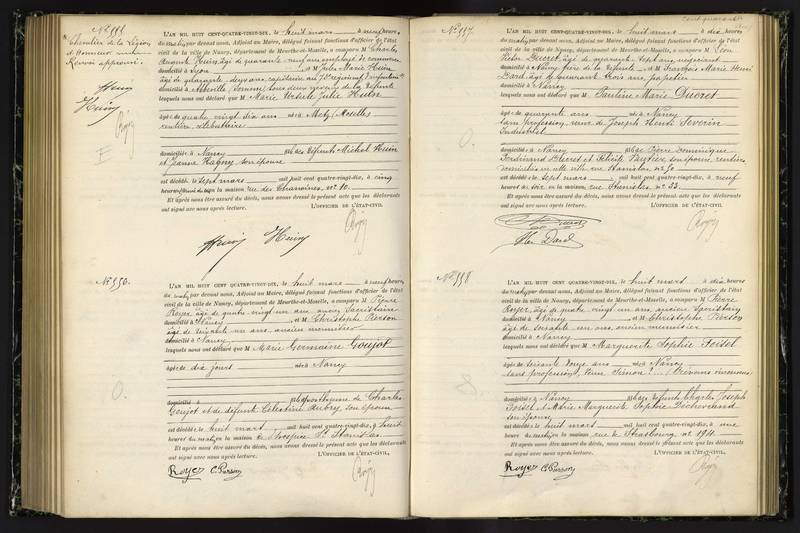 L'AN MIL HUIT CENT-QUATRE-VINGT-DIX, le huit mars à neuf heures,
du matin, par devant nous, Adjoint au Maire, délégué faisant fonctions d'officier de l'état
civil de la ville de Nancy, département de Meurthe-et-Moselle, a comparu M Charles
domicilié à Lyon et M Jules Marie Husin
domicilié à Abbeville (Somme) tous deux neveux de la défunte
lesquels nous ont déclaré que M Marie Ursule Julie Husin
âgée de quatre vingt dix ans née à Metz (Moselle)
rentière, célibataire
domiciliée à Nancy fille des défunts Michel Husin
et Jeanne Hagny, son épouse
est décédée le sept mars mil huit cent quatre-vingt-dix, à cinq
heures en la maison rue des Chanoines, nº 10.
Et après nous être assuré du décès, nous avons dressé le présent acte que les déclarants
ont signé avec nous après lecture. L'OFFICIER DE L'ÉTAT-CIVIL
L'AN MIL HUIT CENT QUATRE-VINGT-DIX, le huit mars à neuf heures,
du matin, par devant nous, Adjoint au Maire, délégué faisant fonctions d'officier de l'état
civil de la ville de Nancy, département de Meurthe-et-Moselle, a comparu M Pierre
Royer, âgé de quatre-vingt un ans, ancien sacristain
domicilié à Nancy et M Christophe Pierson
âgé de soixante un ans, ancien menuisier
domicilié à Nancy
lesquels nous ont déclaré que M Marie Germaine Goujot
âgée de dix jours née à Nancy
domiciliée à fille posthume de Charles
Goujot et de défunte Célestine Aubry, son épouse
est décédée le huit mars mil huit cent quatre-vingt-dix, à huit
heures du matin, en la maison de l'hospice St Stanislas
Et après nous être assuré du décès, nous avons dressé le présent acte que les déclarants
ont signé avec nous après lecture. L'OFFICIER DE L'ÉTAT-CIVIL,
Royer C. Pierson
Nº 557
L'AN MIL HUIT CENT QUATRE-VINGT-DIX, le huit mars à dix heures
du matin, par devant nous, Adjoint au Maire, délégué faisant fonctions d'officier de l'état
civil de la ville de Nancy, département de Meurthe-et-Moselle, a comparu M Léon
Victor Ducret, âgé de quarante sept ans, négociant
domicilié à Nancy, frère de la défunte et M François Marie Henri
Dard, âgé de quarante trois ans, papetier
domicilié à Nancy
lesquels nous ont déclaré que M Pauline Marie Ducret
âgée de quarante ans née à Nancy
sans profession, veuve de Joseph Henri Séverin
domiciliée à Nancy fille de Pierre Dominique
Ferdinand Ducret et Félicité son épouse, rentiers
domiciliés en cette ville rue Stanislas, nº 50
est décédée le sept mars mil huit cent quatre-vingt-dix, à neuf
heures du soir, en la maison, rue Stanislas, nº 53.
Et après nous être assuré du décès, nous avons dressé le présent acte que les déclarants
ont signé avec nous après lecture. L'OFFICIER DE L'ÉTAT-CIVIL
Hri Dard
Nº 558
L'AN MIL HUIT CENT QUATRE-VINGT-DIX, le huit mars à dix heures
du matin, par devant nous, Adjoint au Maire, délégué faisant fonctions d'officier de l'état
civil de la ville de Nancy, département de Meurthe-et-Moselle, a comparu M Pierre
Royer, âgé de quatre vingt un ans, ancien sacristain
domicilié à Nancy et M Christophe Pierson
âgé de soixante un ans, ancien menuisier
domicilié à Nancy
lesquels nous ont déclaré que M Marguerite Sophie Foisel
âgée de soixante douze ans née à Nancy
sans profession, veuve Simon ? (Prénoms inconnus)
domiciliée à Nancy fille de défunts Charles Joseph
Foisel et Marie Marguerite Sophie
son épouse
est décédée le huit mars mil huit cent quatre-vingt-dix, à une
heure du matin, en la maison, rue de Strasbourg, nº 194.
Et après nous être assuré du décès, nous avons dressé le présent acte que les déclarants
ont signé avec nous après lecture. L'OFFICIER DE L'ÉTAT-CIVIL,
Royer C. Pierson